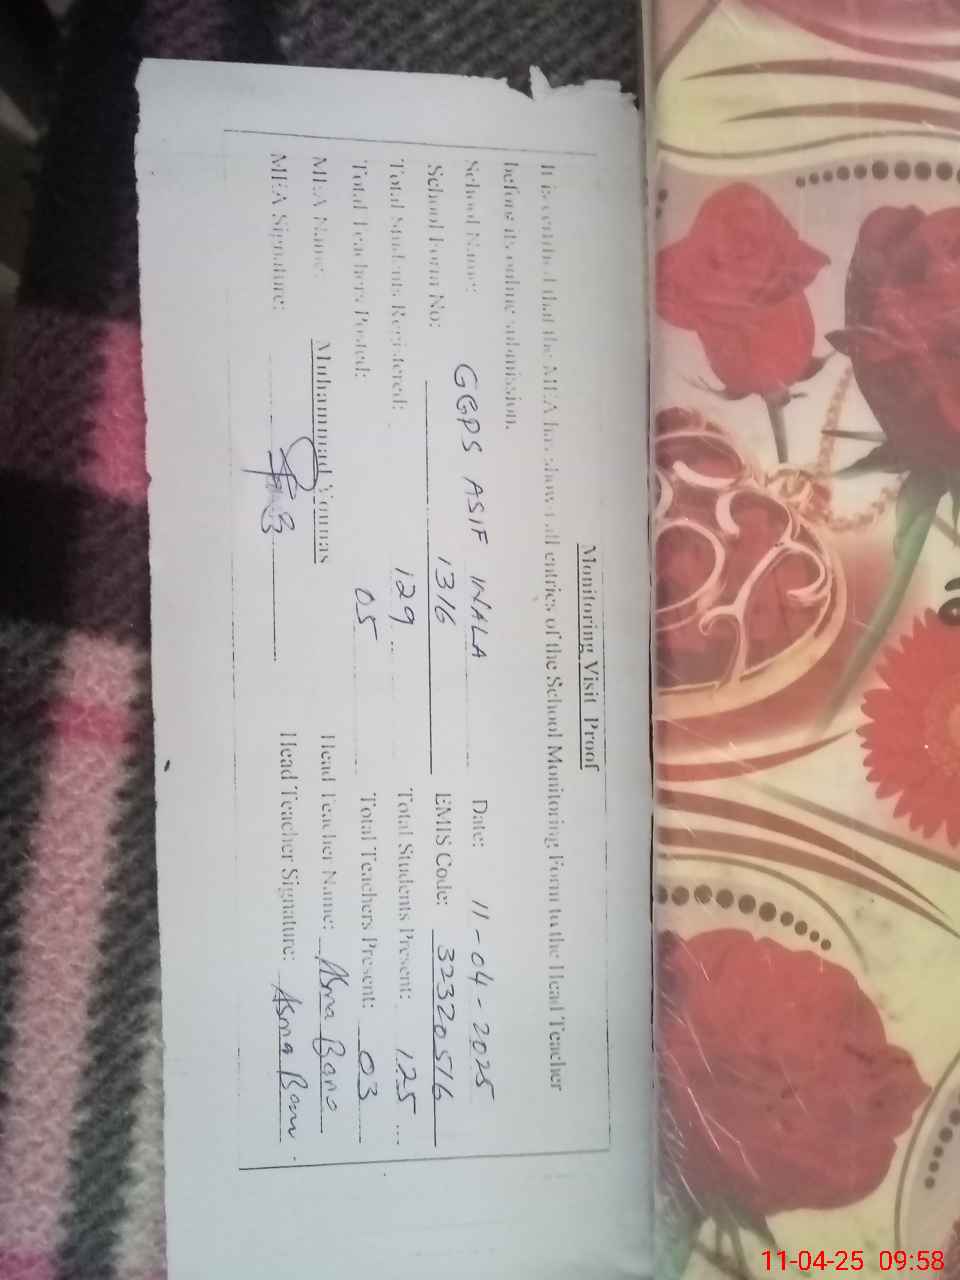 Monitoring Visit Proof
It is certified that the MEA has shown all entries of the School Monitoring Form to the Head Teacher
before its online submission.
School Name: GGPS ASIF WALA Date: 11-04-2025
School Form No: 1316 EMIS Code: 32320516
Total Students Registered: 129 Total Students Present: 125
Total Teachers Posted: 05 Total Teachers Present: 03
MEA Name: Muhammad Younas Head Teacher Name: Asma Bano
MEA Signature: Head Teacher Signature: Asma Bano
11-04-25 09:58